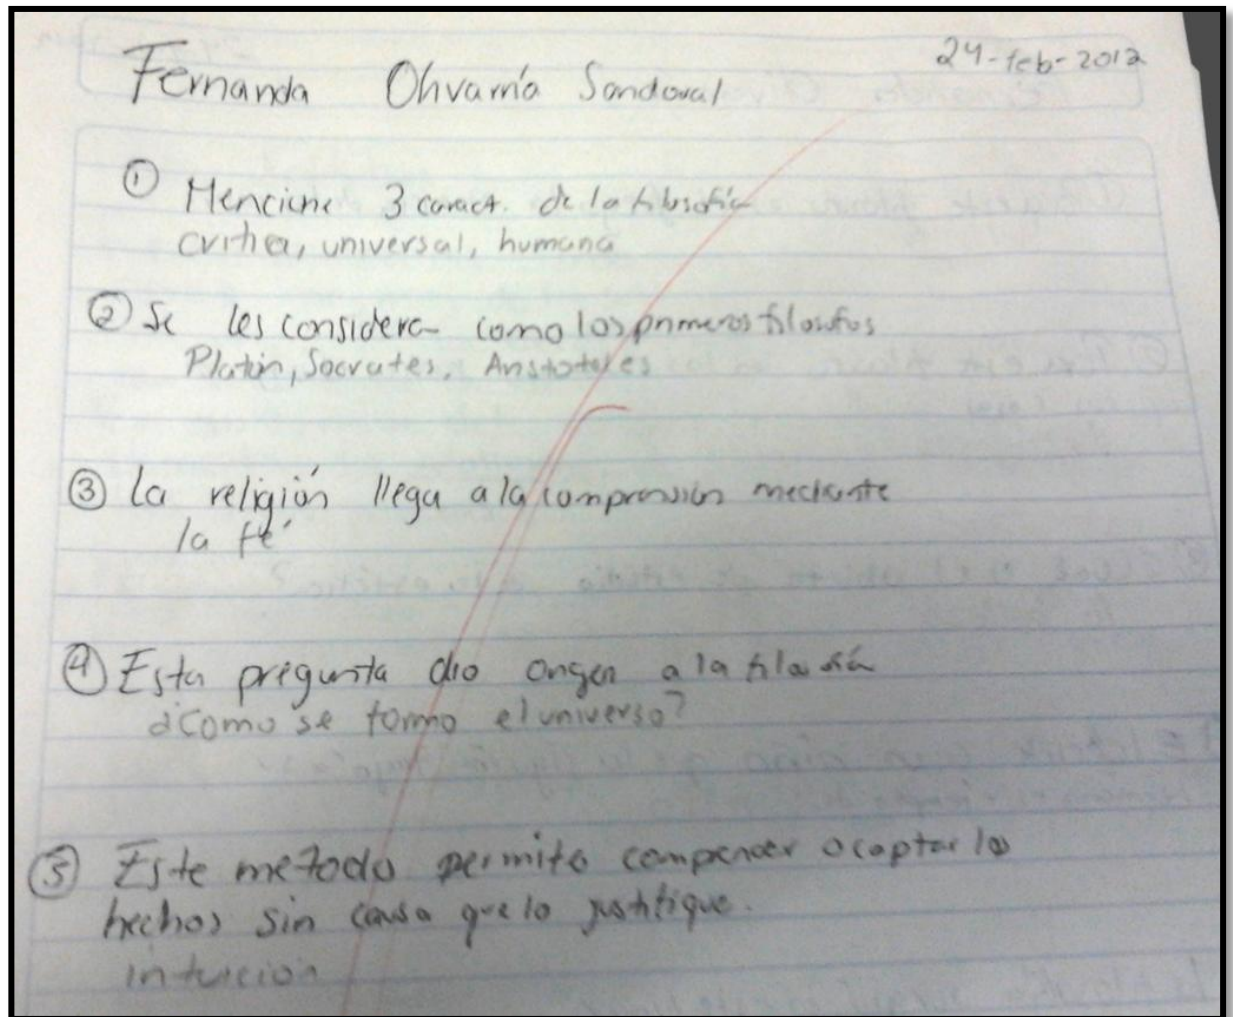 Fernanda Olivarría Sandoval
24-feb-2012
① Mencione 3 caract. de la filosofía
critica, universal, humana
② Se les considera como los primeros filosofos
Platón, Socrates, Aristoteles
③ La religión llega a la comprensión mediante
la fé
④ Esta pregunta dio origen a la filosofía
¿Como se formo el universo?
⑤ Este metodo permite comprender o captar los
hechos sin causa que lo justifique.
intuicion